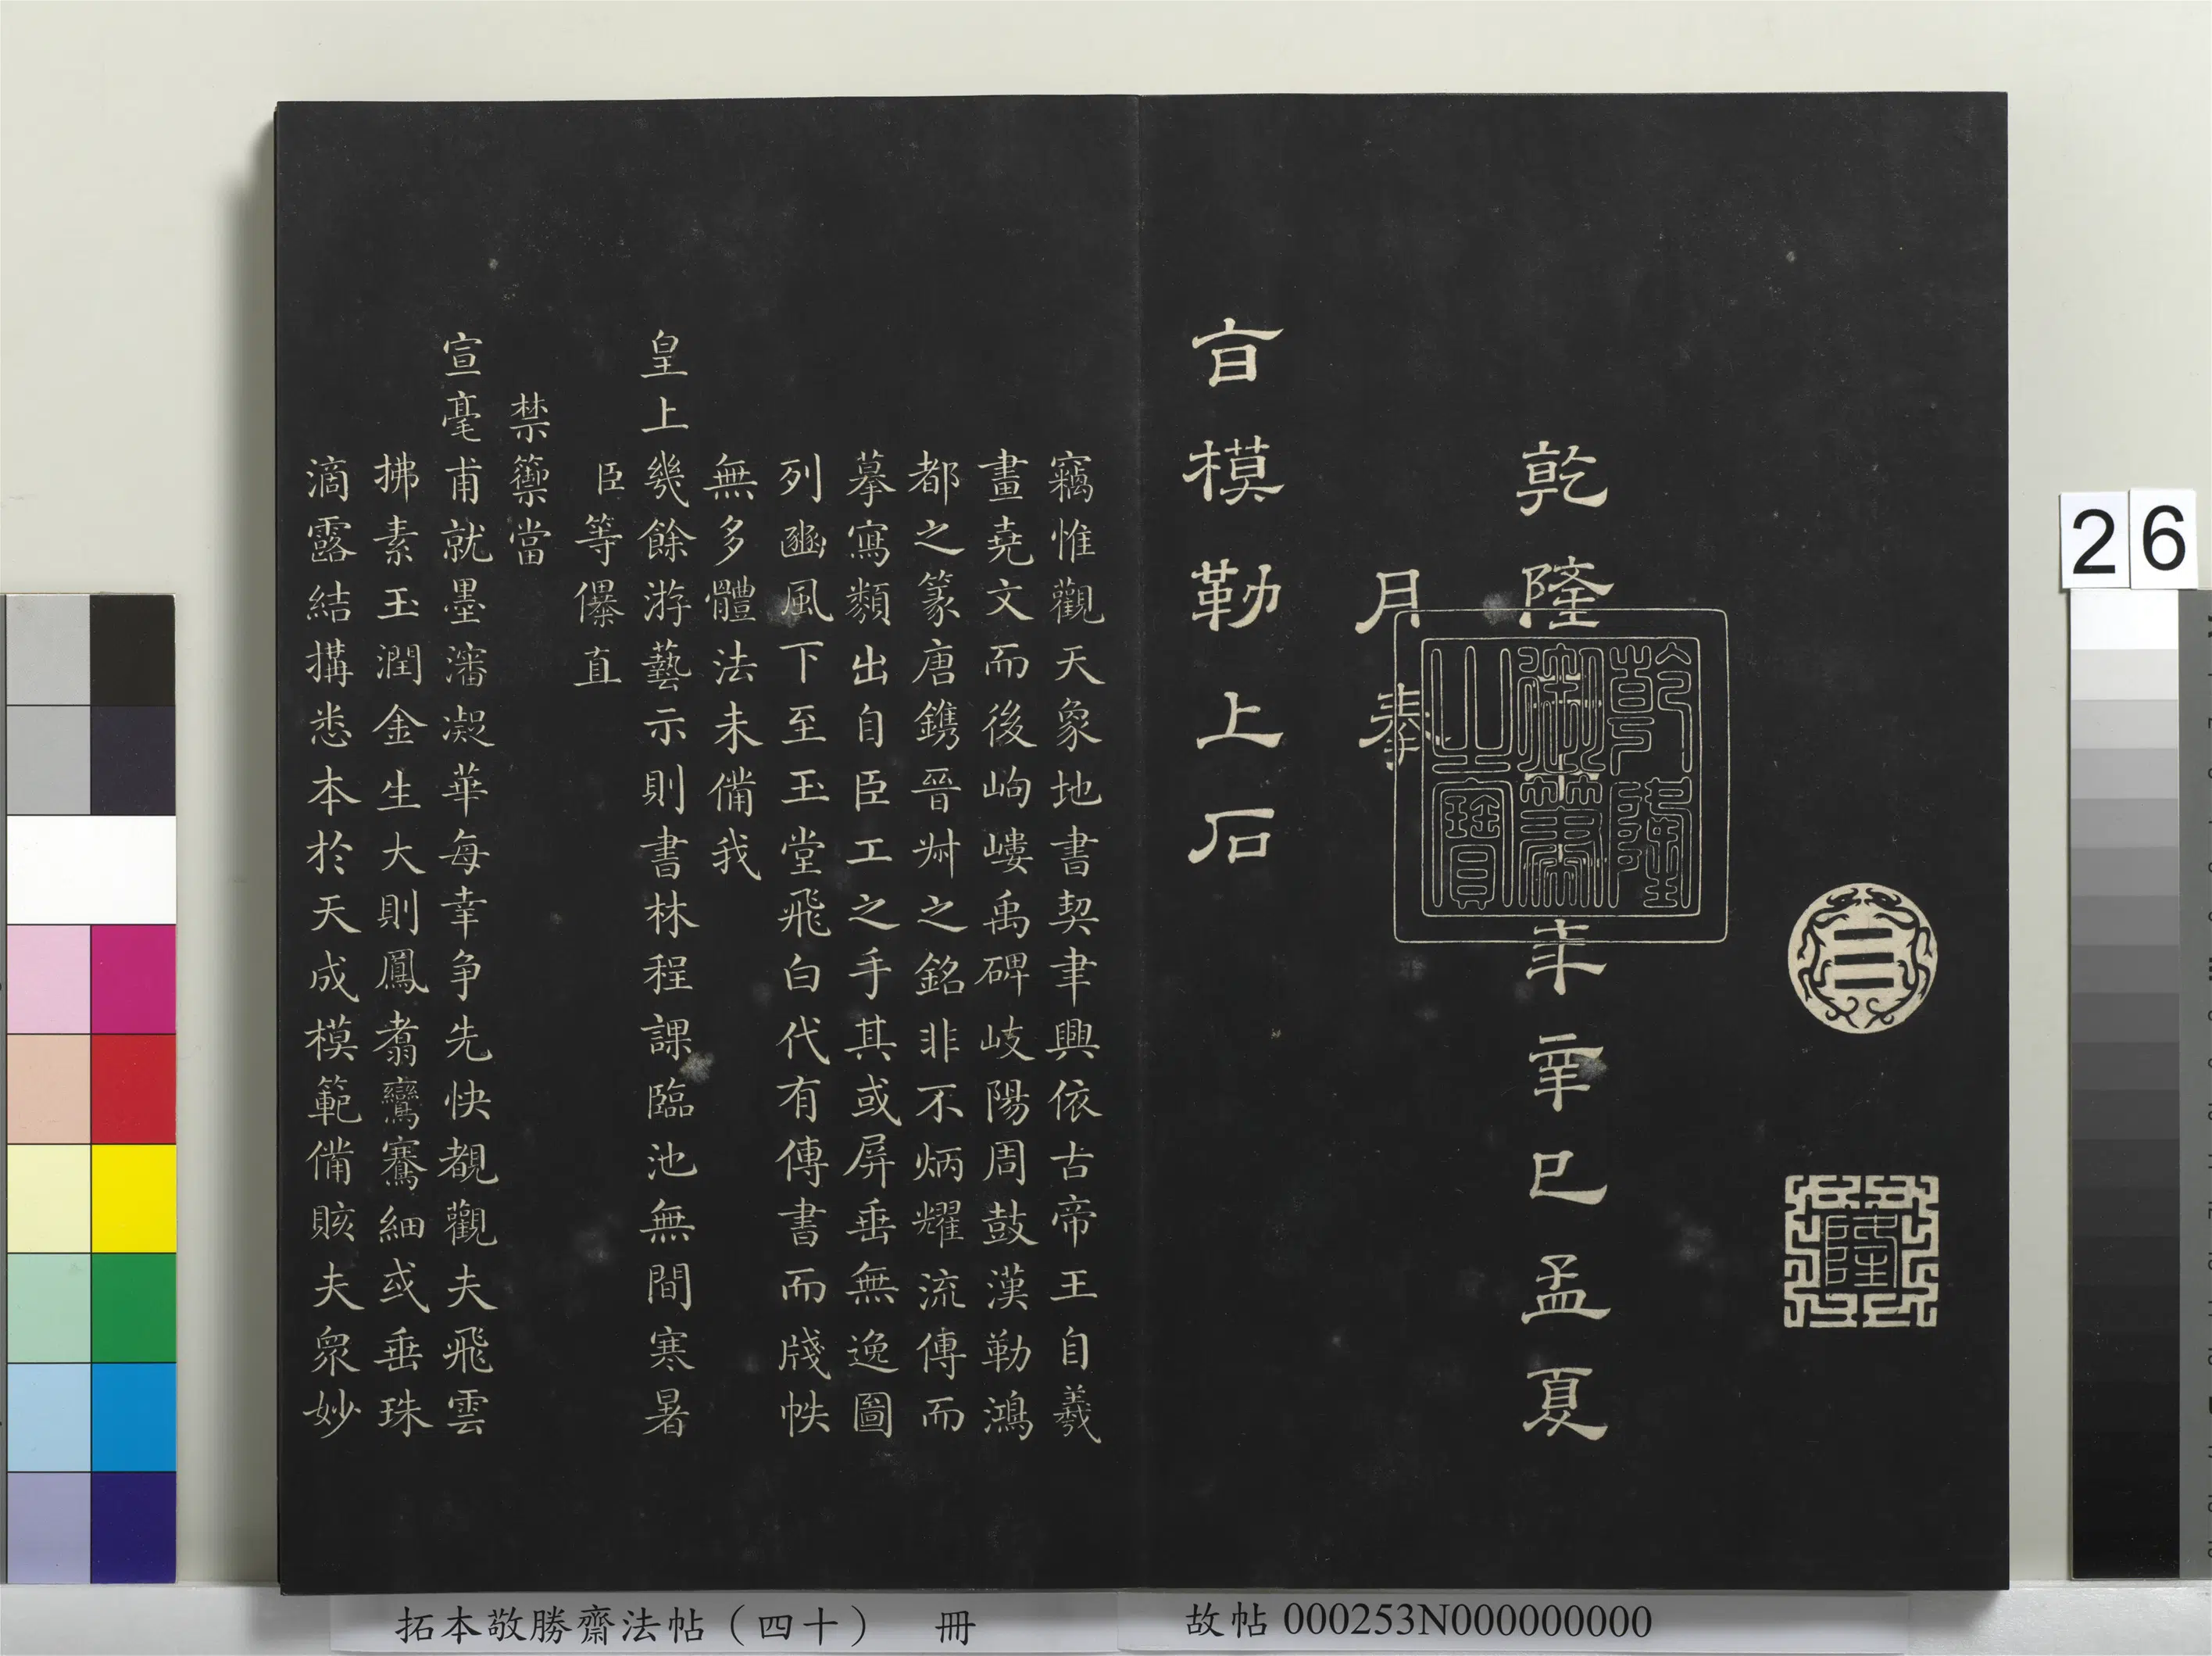 乾隆年辛巳孟夏
月奉
旨模勒上石
乾隆
御筆
之寶
隆
竊惟觀天象地書契聿興依古帝王自羲
畫堯文而後岣嶁禹碑岐陽周鼓漢勒鴻
都之篆唐鐫晉州之銘非不炳耀流傳而
摹寫類出自臣工之手其或屏垂無逸圖
列豳風下至玉堂飛白代有傳書而牋帙
無多體法未備我
皇上幾餘游藝示則書林程課臨池無間寒暑
臣等儤直
禁籞當
宣毫甫就墨瀋凝華每幸争先快覩觀夫飛雲
拂素玉潤金生大則鳳翥鸞騫細或垂珠
滴露結搆悉本於天成模範備賅夫衆妙
26
拓本敬勝齋法帖（四十） 冊
故帖 000253N000000000